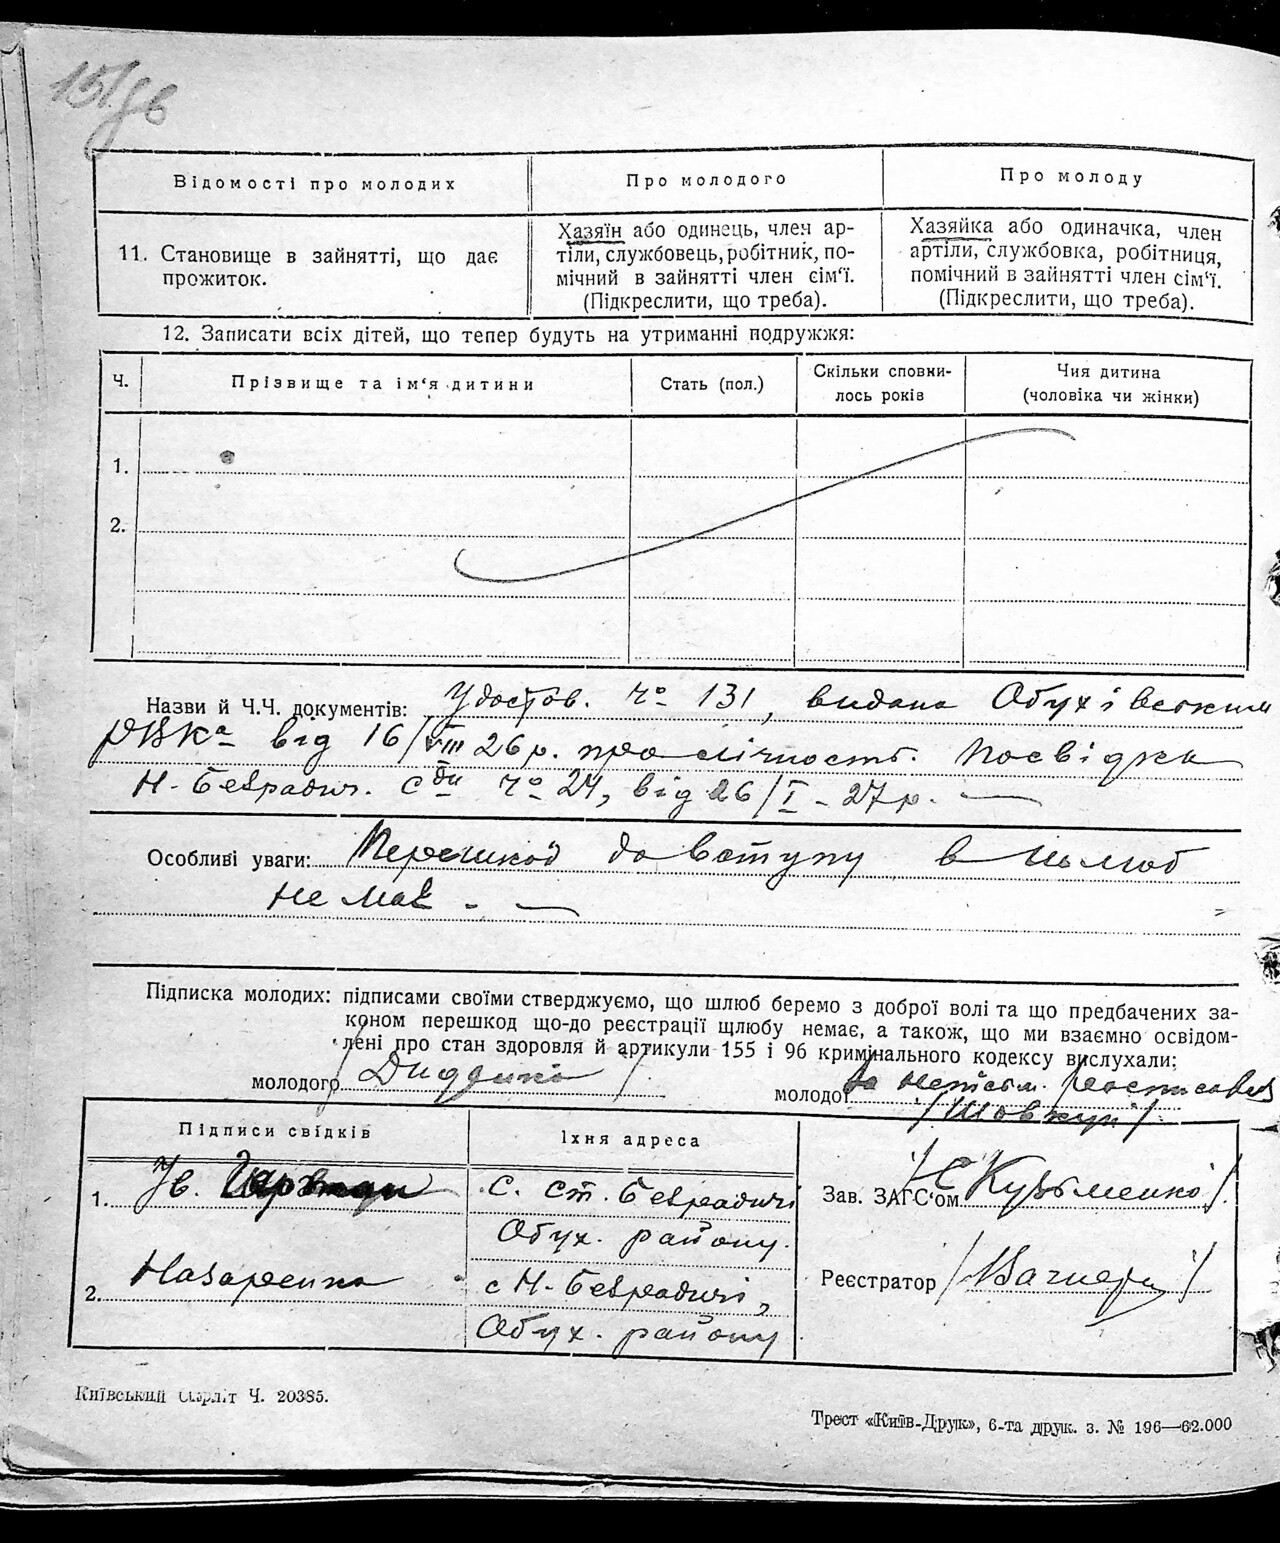 151 зв
Відомості про молодих
Про молодого
Про молоду
11. Становище в зайнятті, що дає
прожиток.
Хазяїн або одинець, член ар-
тіли, службовець, робітник, по-
мічний в зайнятті член сім‘ї.
(Підкреслити, що треба).
Хазяйка або одиначка, член
артіли, службовка, робітниця,
помічний в зайнятті член сім‘ї.
(Підкреслити, що треба).
12. Записати всіх дітей, що тепер будуть на утриманні подружжя:
Ч.
Прізвище та ім‘я дитини
Стать (пол.)
Скільки сповни-
лось років
Чия дитина
(чоловіка чи жінки)
1.
2.
Назви й Ч.Ч. документів: Удостов. Ч° 131, видана Обухівським
РВКа від 16/VIII 26 р. про лічность. Посвідка
Н-Безрадич. с/ди Ч° 24, від 26/I - 27 р.
Особливі уваги: Перешкод до вступу в шлюб
не має.
Підписка молодих: підписами своїми стверджуємо, що шлюб беремо з доброї волі та що предбачених за-
коном перешкод що-до реєстрації щлюбу немає, а також, що ми взаємно освідом-
лені про стан здоровля й артикули 155 і 96 кримінального кодексу вислухали:
молодого /Диденко/
молодої за неписьм. росписався
/Шовкун/
Підписи свідків
Їхня адреса
1. Ів.
с. Ст. Безрадичі
Обух. району.
2. Назаренко
с Н-Безрадичі,
Обух. району
Зав. ЗАГС‘ом /Кузьменко/
Реєстратор /Вагнер/
Київський Окрліт Ч. 20385.
Трест «Київ-Друк», 6-та друк. з. № 196—62.000